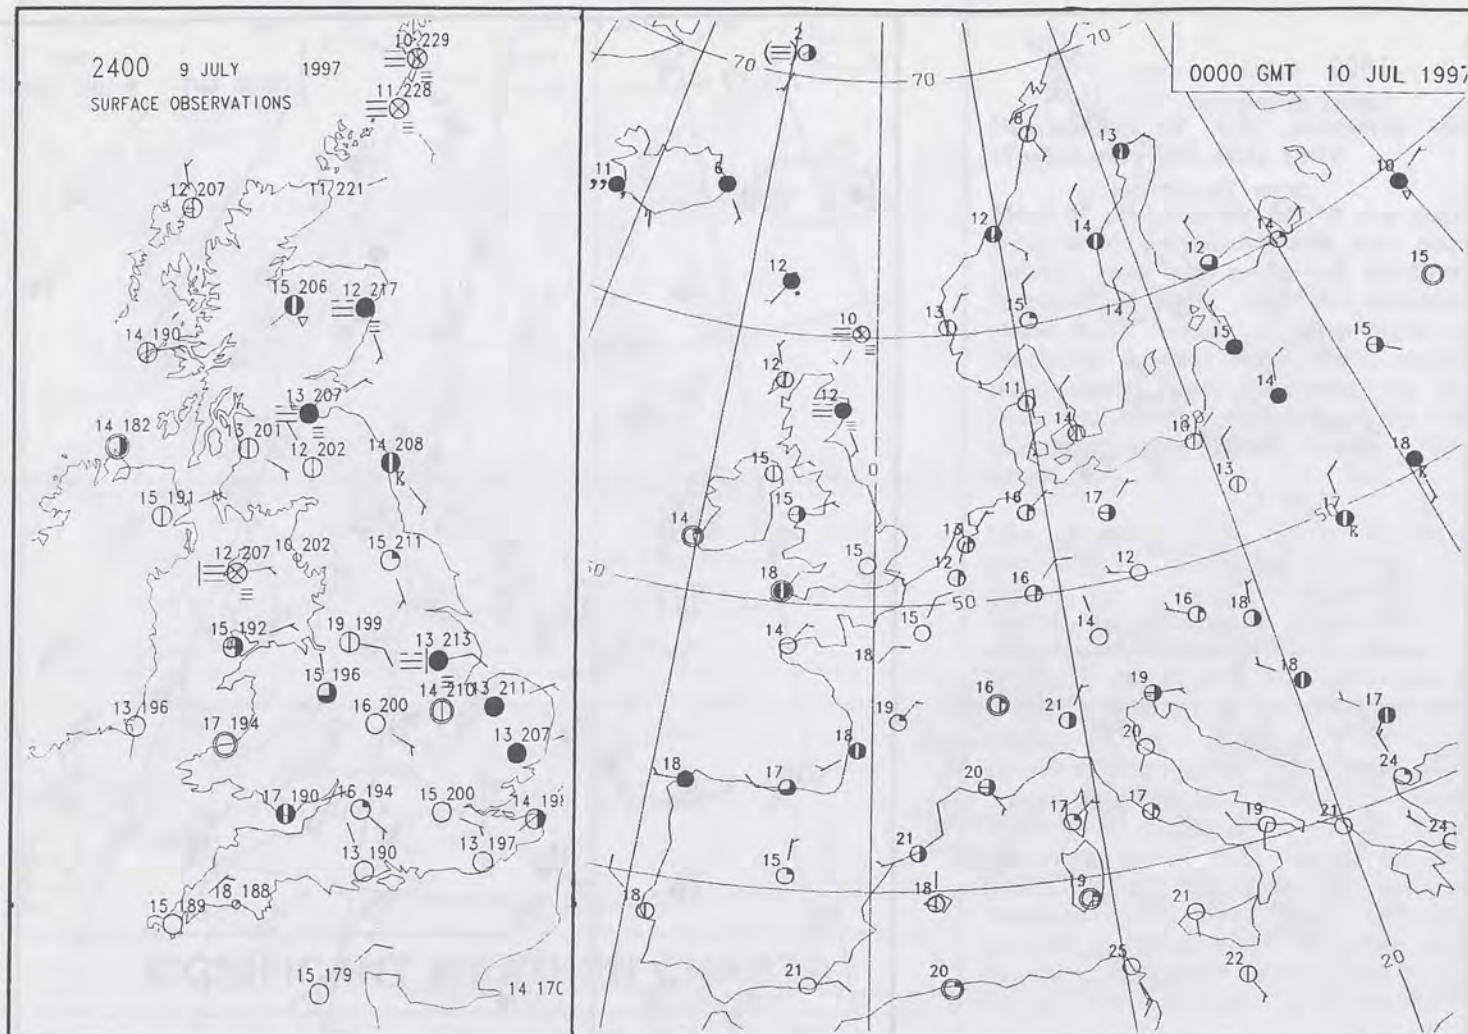 2400 9 JULY 1997
SURFACE OBSERVATIONS
10 229
11 228
12 207
11 221
15 206
12 217
14 190
13 207
14 182
13 201
12 202
14 208
K
15 191
12 207
10 202
15 211
15 192
19 199
13 213
15 196
14 210
13 211
13 196
17 194
16 200
13 207
17 190
16 194
15 200
14 198
13 190
13 197
15 189
18 188
15 179
14 170
0000 GMT 10 JUL 1997
2
70
70
70
8
13
11
6
10
12
14
14
12
15
12
10
13
15
14
15
15
12
12
11
14
14
10
18
K
15
0
13
15
14
16
17
17
50
K
15
12
18
50
12
16
16
18
15
14
14
18
19
18
16
21
19
17
18
18
17
20
20
24
17
17
19
21
24
15
21
18
18
9
21
21
20
25
22
20